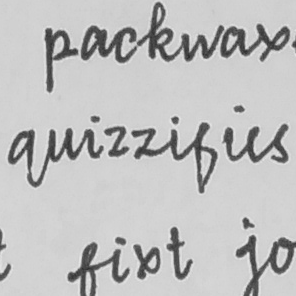 packwax
quizzifies
fixt jo